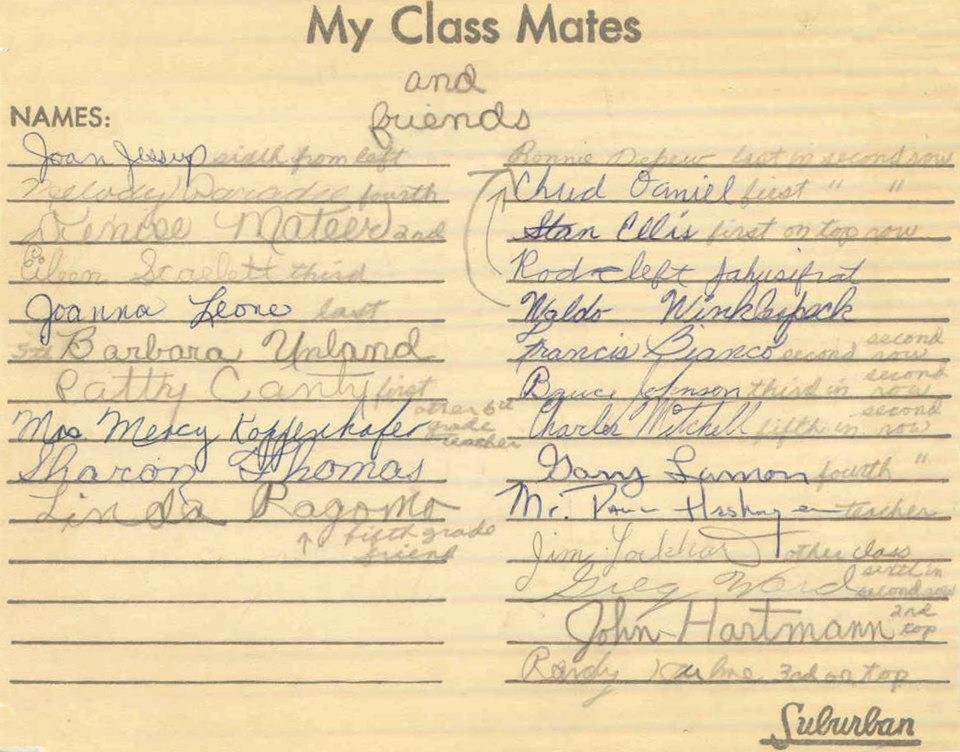 My Class Mates
and
friends
NAMES:
Joan Jessup sixth from left
Mellody Paradee fourth
Denise Mateer 2nd
Eileen Starlett third
Joanna Leone last
5th Barbara Unland
Patty Canty first
Mrs Mercy Koppenhafer other 6th grade teacher
Sharon Thomas
Linda Ragomo
↑ fifth grade
friend
Ronnie Depew last in second row
Chud Daniel first " "
Stan Ellis first on top row
Rod-cleft
Waldo Winklespeck
Francis Bianco second second row
Bruce Johnson third in second row
Charles Mitchell fifth in second row
Gary Lamon fourth "
Mr. teacher
Jim Lockhart other class
Greg Ward sixth in second row
John Hartmann 2nd top
Randy 3rd on top
Suburban